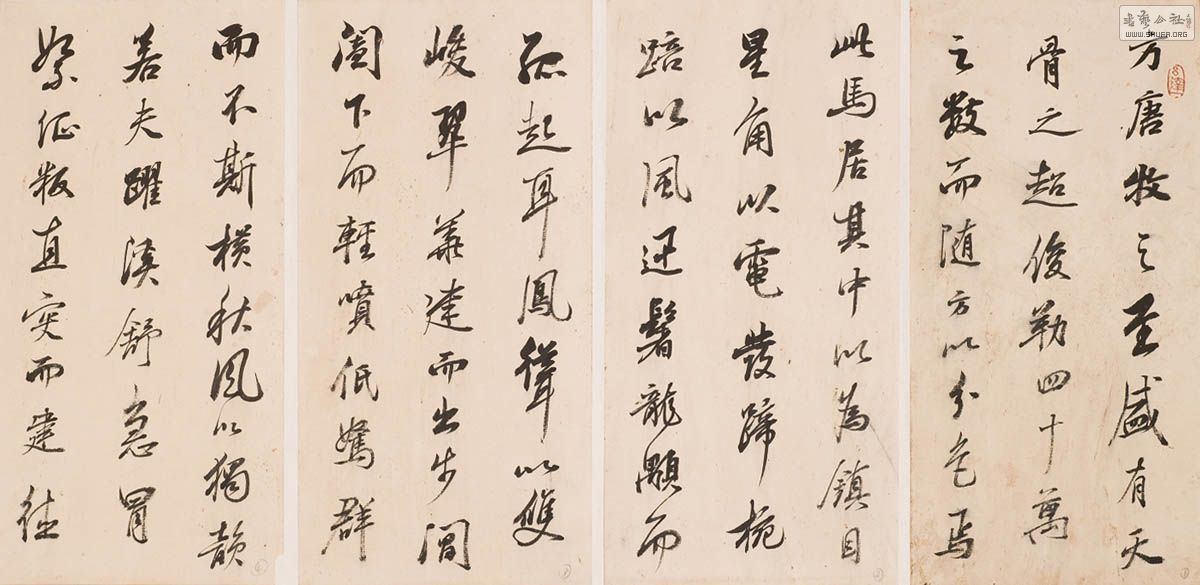 方唐牧之至盛有天
骨之超俊勒四十萬
之數而随方以分色焉
此馬居其中以為鎮目
星角以電發蹄椀
踣以風迅鬐龍顒而
孤起耳鳳聳以雙
峻翠華建而出步閶
闔下而輕噴低駑群
而不斯橫秋風以獨韻
若夫躍溪舒急冒
絮征叛直突而建徳
書藝公社